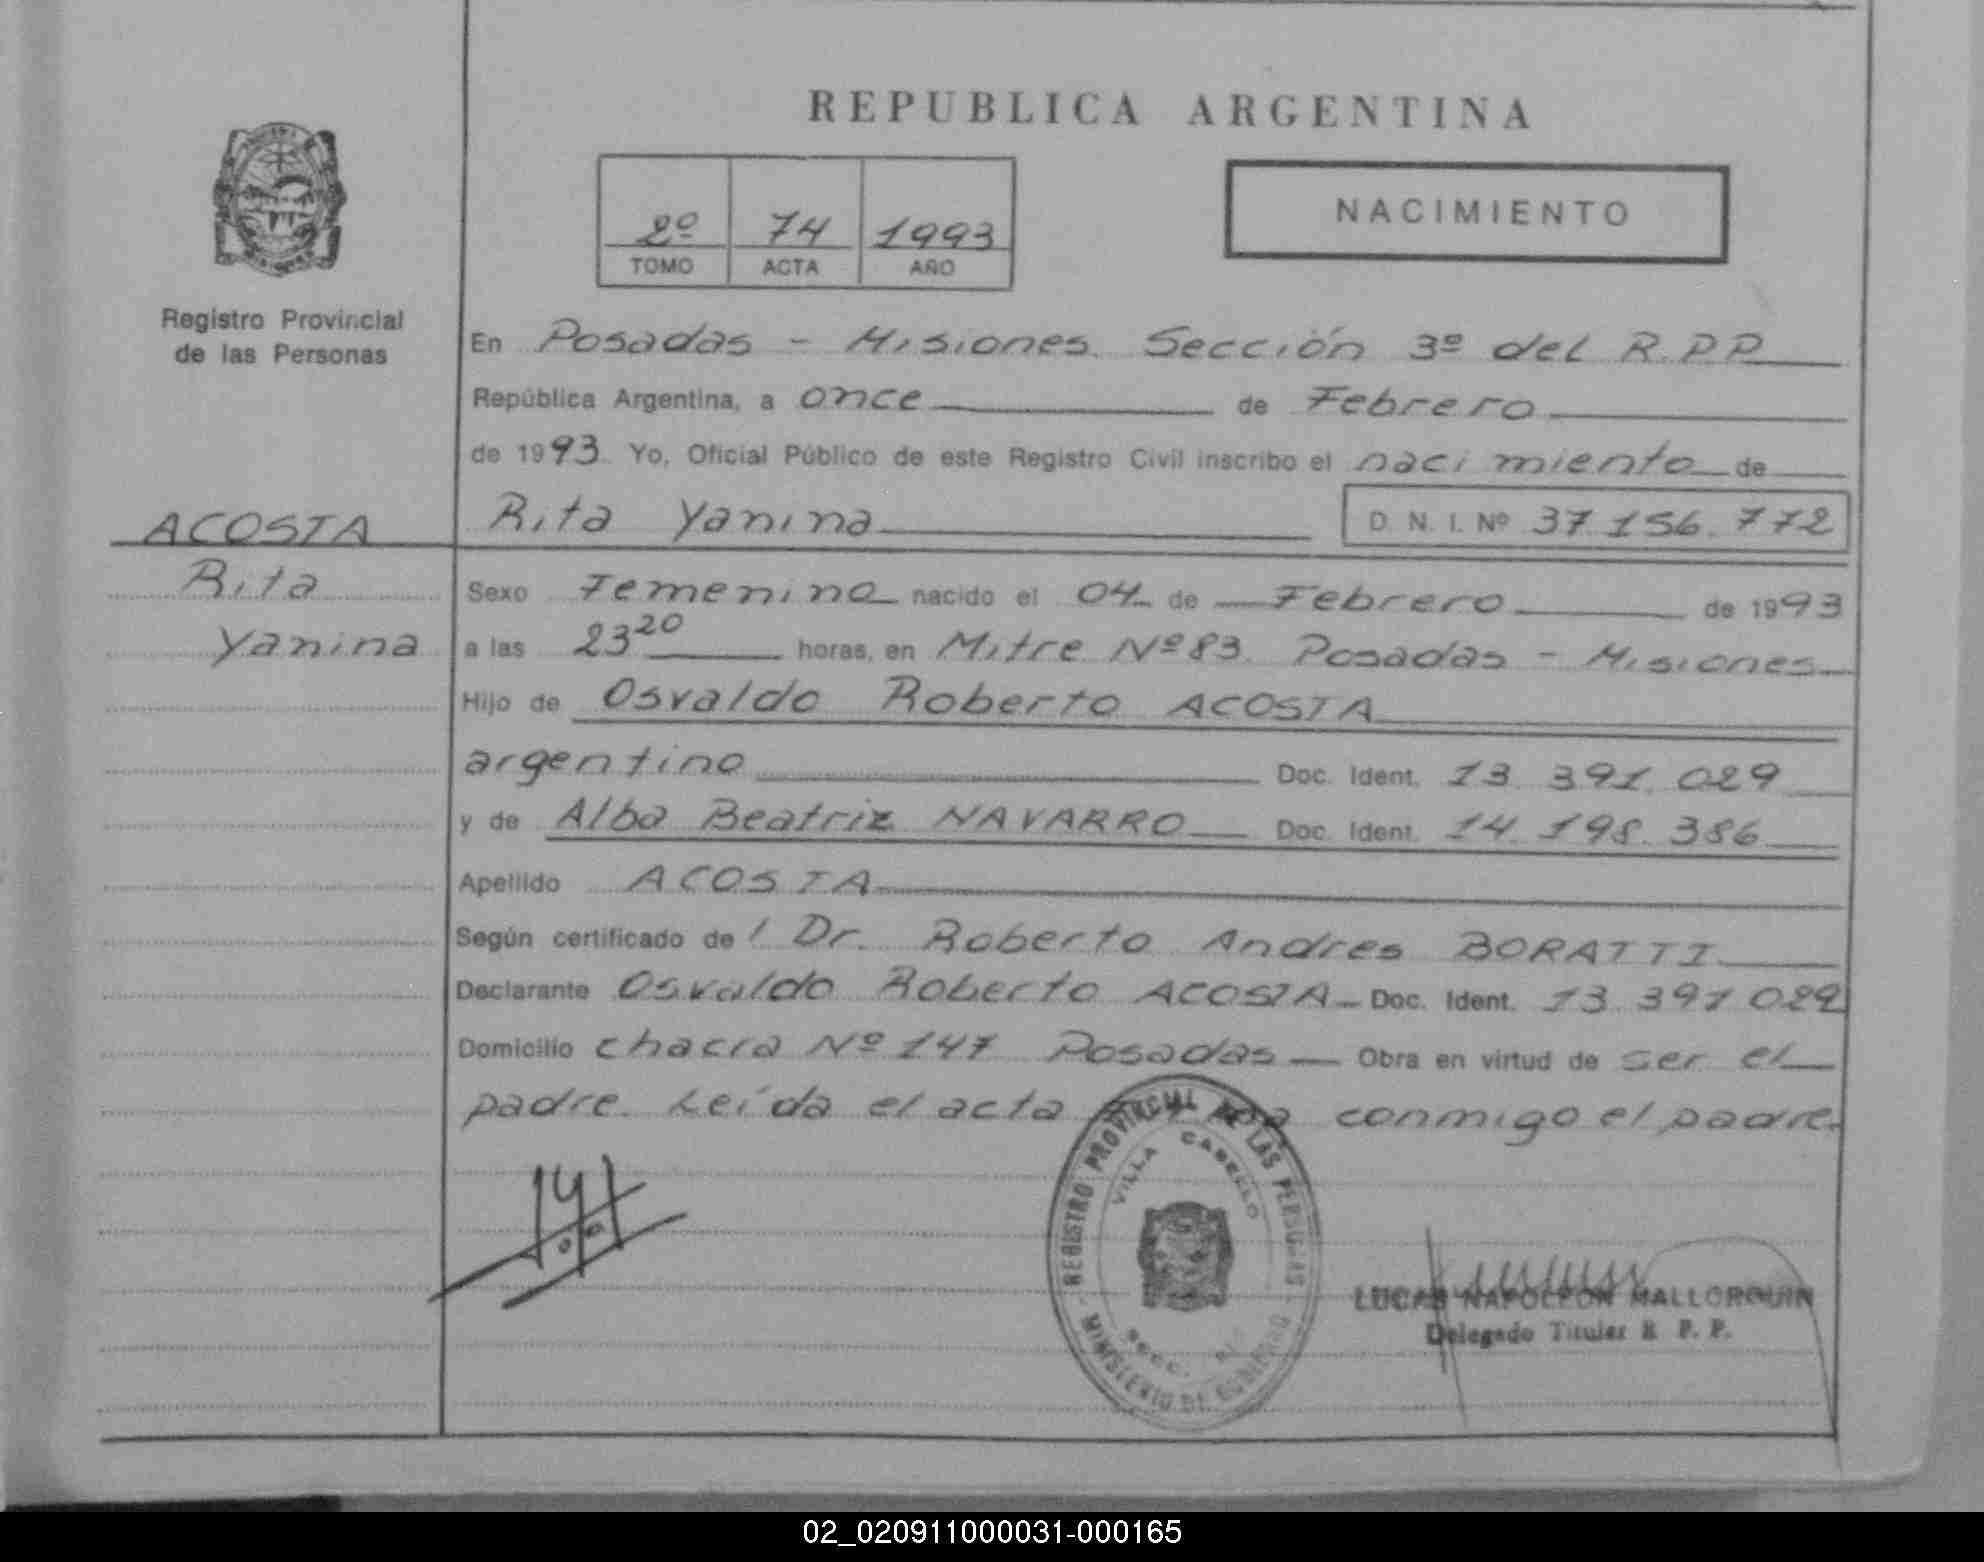 REPUBLICA ARGENTINA
2º 74 1993
TOMO ACTA AÑO
NACIMIENTO
Registro Provincial
de las Personas
En Posadas - Misiones. Sección 3º del R.P.P.
República Argentina, a once de Febrero
de 1993. Yo, Oficial Público de este Registro Civil inscribo el nacimiento de
Rita Yanina D. N. I. Nº 37.156.772
ACOSTA
Rita
Yanina
Sexo Femenino nacido el 04 de Febrero de 1993
a las 23 20 horas, en Mitre Nº 83. Posadas - Misiones
Hijo de Osvaldo Roberto ACOSTA
argentino Doc. Ident. 13.391.029
y de Alba Beatriz NAVARRO Doc. Ident. 14.198.386
Apellido ACOSTA
Según certificado del Dr. Roberto Andres BORATTI
Declarante Osvaldo Roberto ACOSTA Doc. Ident. 13.391.029
Domicilio chacra Nº 147 Posadas Obra en virtud de ser el
padre. Leída el acta conmigo el padre.
REGISTRO PROVINCIAL DE LAS PERSONAS
VILLA CABELLO
SECC.
MINISTERIO DE GOBIERNO
LUCAS NAPOLEON MALLORQUIN
Delegado Titular R. P. P.
02_020911000031-000165